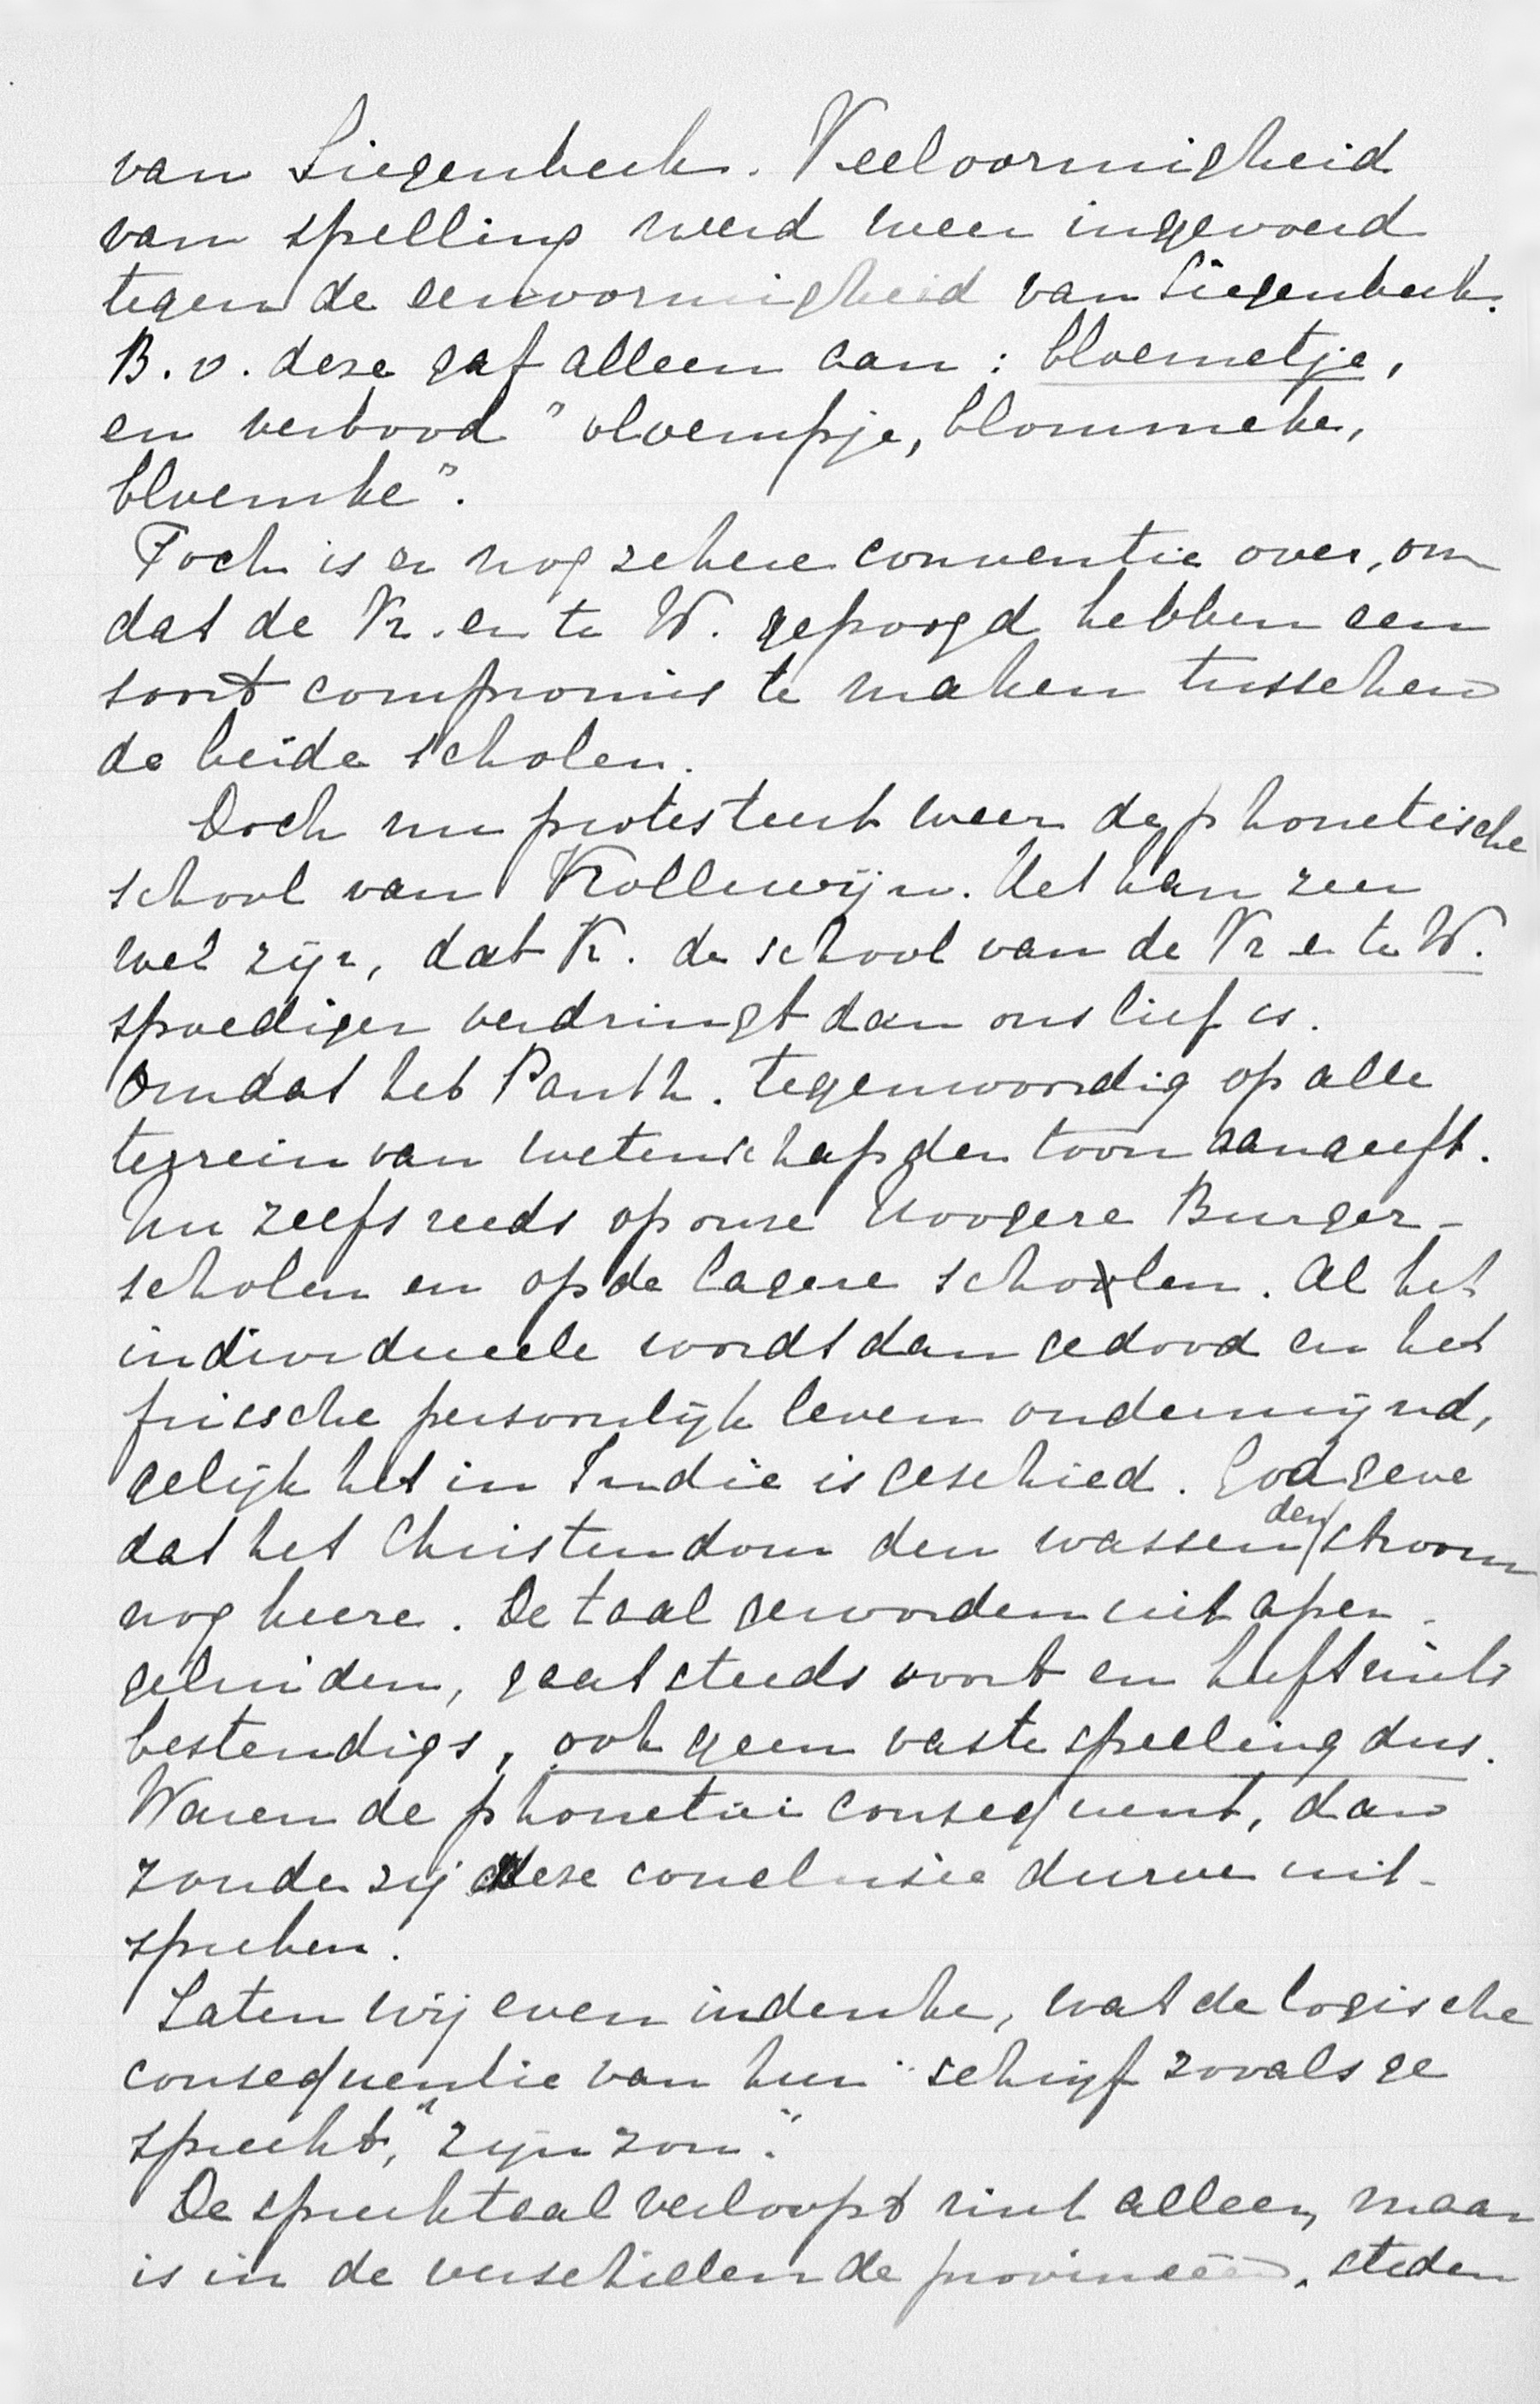 van Siegenbeek. Veelvormigheid
van spelling werd weer ingevoerd
tegen de eenvormigheid van Siegenbeek.
B.v. deze gaf alleen aan: bloemetje,
en verbood "bloempje, blommeke,
bloemke".
Toch is er nog zekere conventie over, om
dat de Vr. en te W. gepoogd hebben een
soort compromis te maken tusschen
de beide scholen.
Doch nu protesteert weer de phonetische
school van Kollewijn. Het kan zeer
wel zijn, dat K. de school van de Vr en te W.
spoediger verdringt dan ons lief is.
Omdat het Panth. tegenwoordig op alle
terrein van wetenschap den toon aangeeft.
Nu zelfs reeds op onze Hoogere Burger-
scholen en op de lagere scholen. Al het
individueele wordt dan gedood en het
friessche persoonlijk leven ondermijnd,
gelijk het in Indië is geschied. God geve
dat het Christendom den wassenden stroom
nog keere. De taal geworden uit apen-
geluiden, gaat steeds voort en heeft niets
bestendigs, ook geen vaste spelling dus.
Waren de phonetici consequent, dan
zoude zij deze conclusie durve uit-
spreken.
Laten wij even indenke, wat de logische
consequentie van hun "schrijf zooals ge
spreekt," zijn zou."
De spreektaal verloopt niet alleen, maar
is in de verschillende provincëen, steden